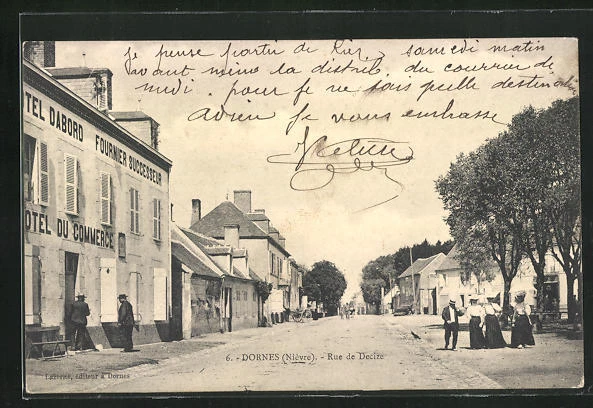 je pense partir de Riez, samedi matin
avant même la distrib. du courrier de
midi. pour je ne sais quelle destination
Adieu je vous embrasse
HÔTEL DABORD FOURNIER SUCCESSEUR
HÔTEL DU COMMERCE
6. - DORNES (Nièvre). - Rue de Decize
éditeur à Dornes